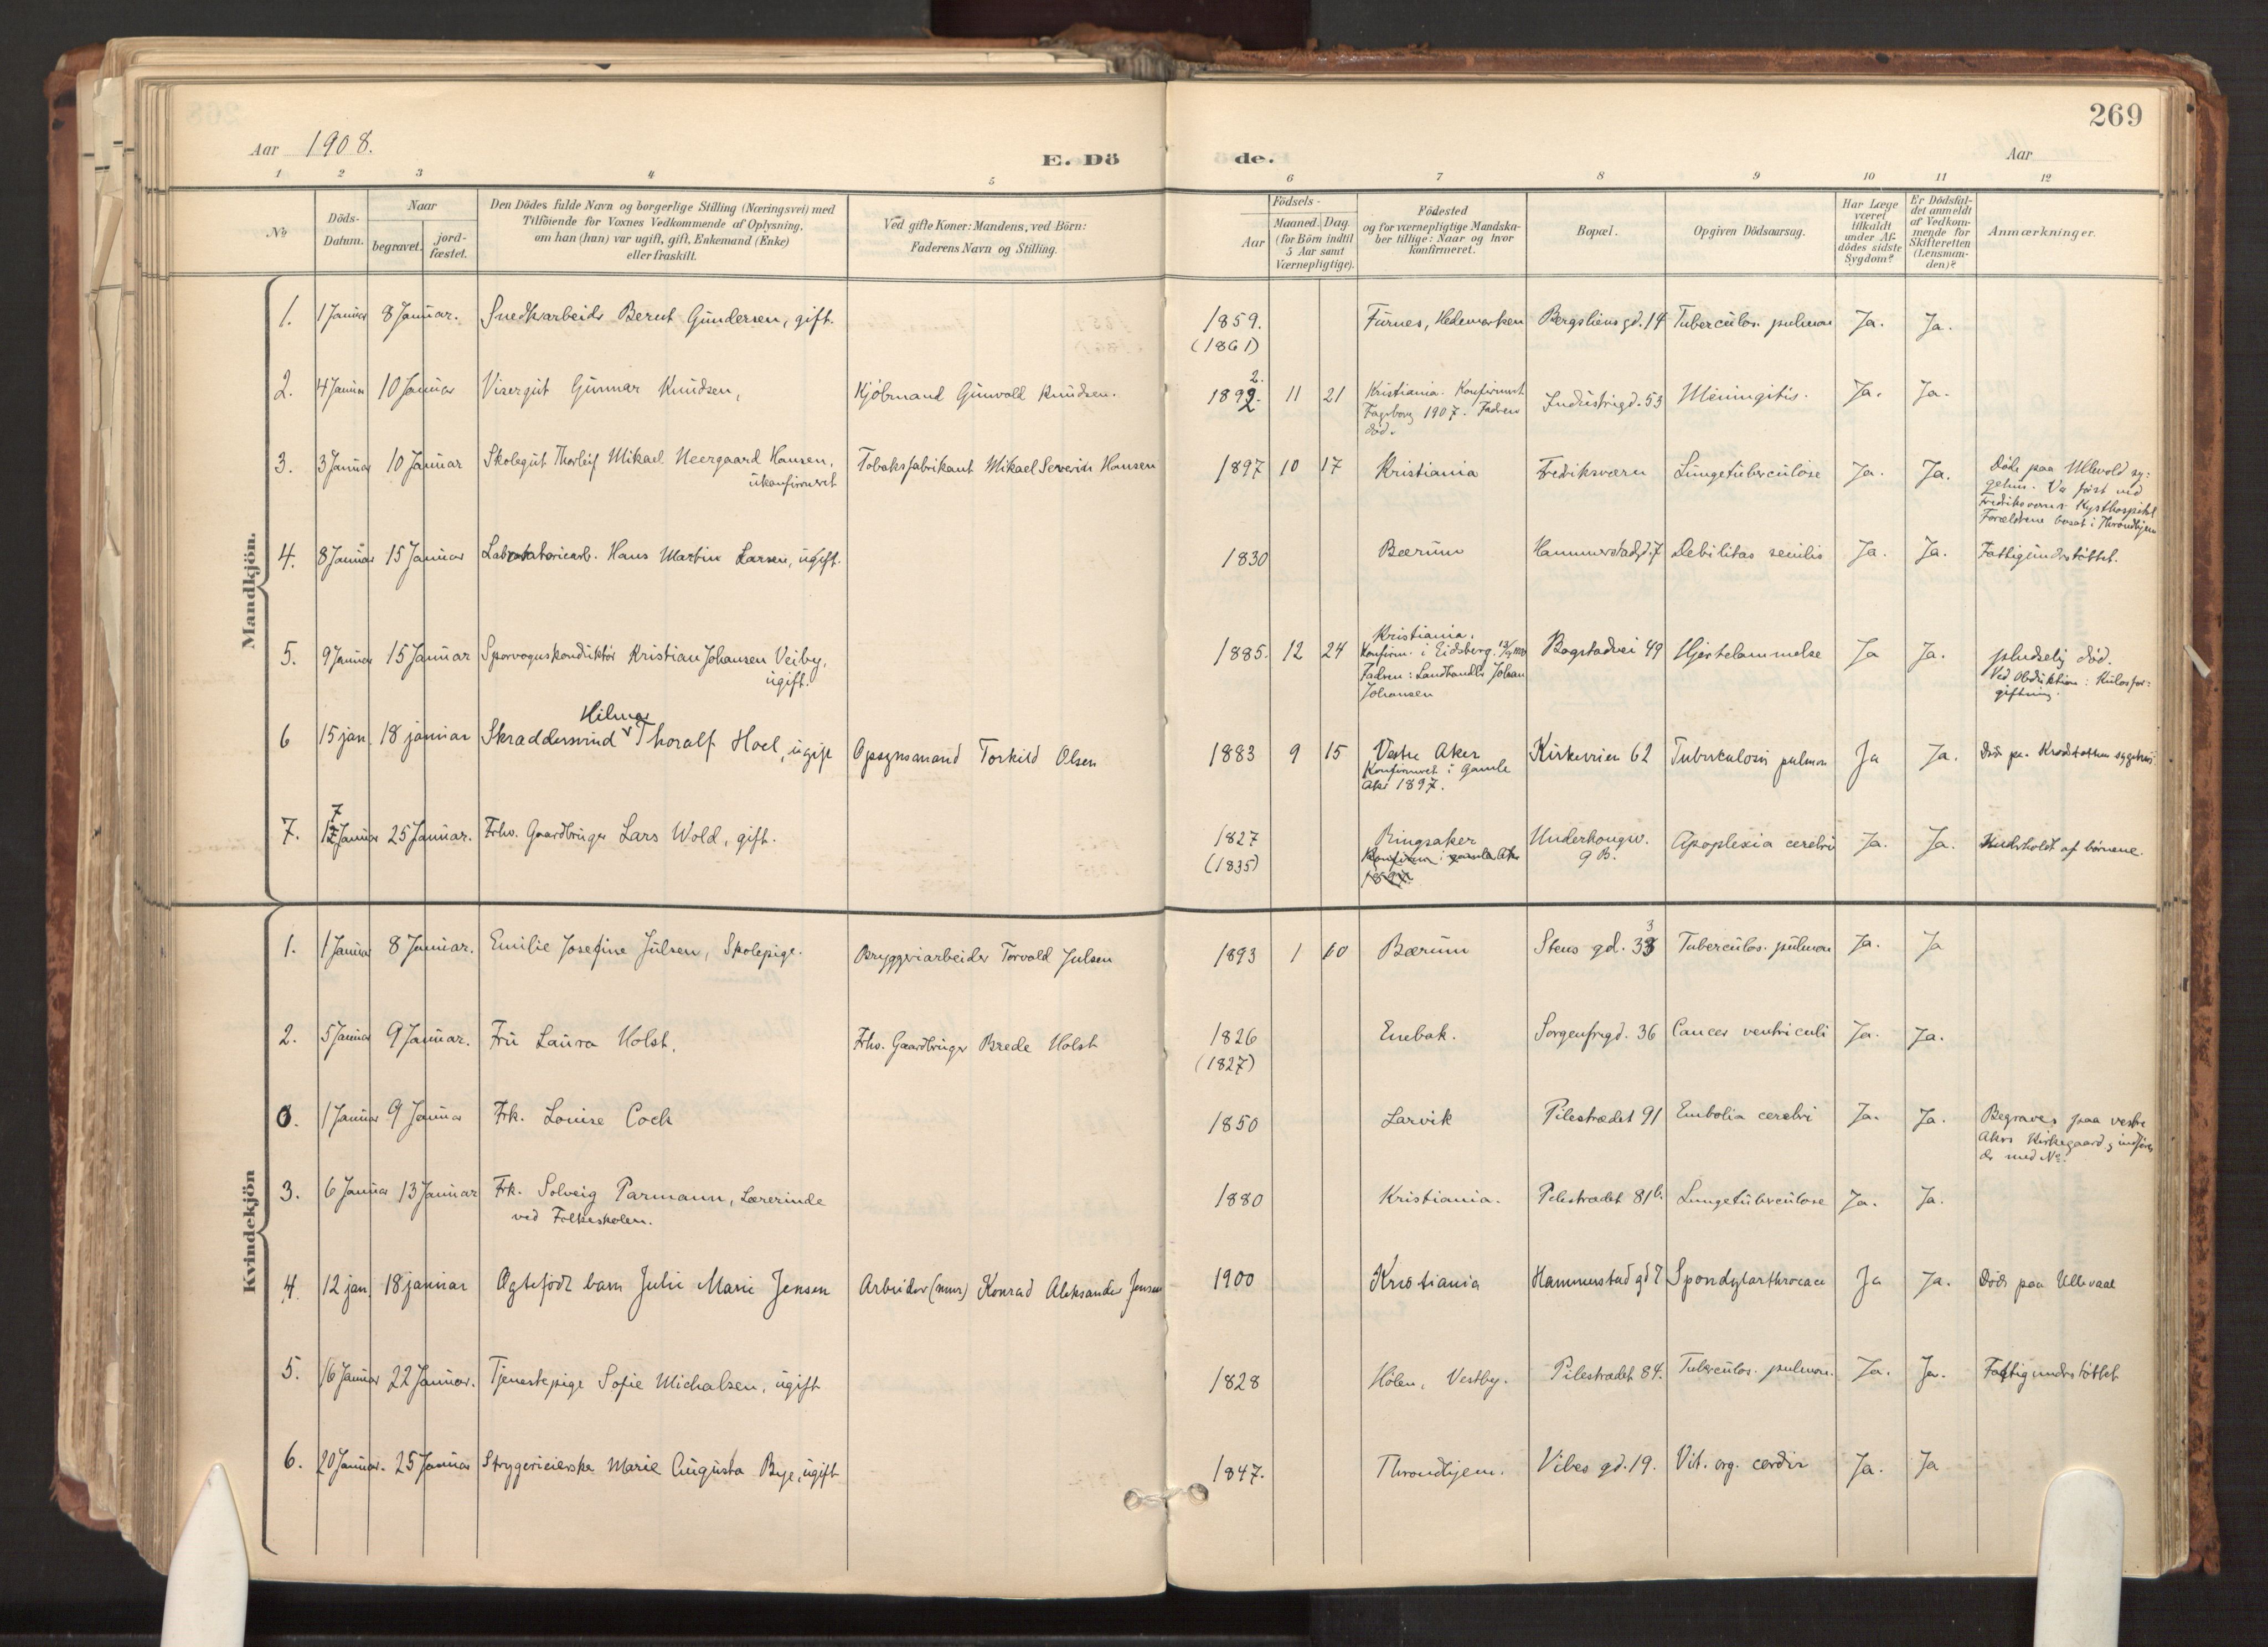 269
Aar 1908.
E. Dö
de.
Aar
1 2 3 4 5 6 7 8 9 10 11 12
No
Döds-Datum.
Naar
begravet.
jord-fæstet.
Den Dödes fulde Navn og borgerlige Stilling (Næringsvei) med
Tilföiende for Voxnes Vedkommende af Oplysning,
om han (hun) var ugift, gift, Enkemand (Enke)
eller fraskilt.
Ved gifte Koner: Mandens, ved Börn:
Faderens Navn og Stilling.
Födsels-
Aar
Maaned. Dag.
(for Börn indtil
5 Aar samt
Værnepligtige).
Födested
og for værnepligtige Mandska-
ber tillige: Naar og hvor
konfirmeret.
Bopæl.
Opgiven Dödsaarsag.
Har Læge
været
tilkaldt
under Af-
dödes sidste
Sygdom?
Er Dödsfal-
det anmeldt
af Vedkom-
mende for
Skifteretten
(Lensman-
den)?
Anmærkninger.
Mandkjön.
1. 1 Januar 8 Januar. Snedkerarbeider Bernt Gundersen, gift. 1859. Furnes, Hedemarken Bergsliens gd. 14 Tuberculos. pulmon Ja. Ja.
(1861)
2. 4 Januar 10 Januar Visergut Gunnar Knudsen, Kjöbmand Gunvald Knudsen. 1892. 11 21 Kristiania. Konfirmert Industrigd. 53 Meningitis. Ja. Ja.
Fagerborg 1907. Faderen
död.
3. 3 Januar 10 Januar Skolegut Thorleif Mikael Neergaard Hansen, Tobaksfabrikant Mikael Severin Hansen 1897 10 17 Kristiania Fredriksværn Lungetuberculose Ja. Ja. Döde paa Ullevold sy-
ukonfirmeret
gehus. Var först ved
Fredriksværns Kysthospital
Forældrene bosat i Throndhjem
4. 8 Januar 15 Januar Laboratoriearb. Hans Martin Larsen, ugift. 1830 Bærum Hammerstadgd. 7 Debilitas senilis Ja. Ja. Fattigunderstöttet.
5. 9 Januar 15 Januar Sporvognskonduktör Kristian Johansen Veiby, 1885. 12 24 Kristiania. Bogstadvei 49 Hjertelammelse Ja Ja. pludselig död.
ugift.
Konfirm. i Eidsberg.
Faderen: Landhandler Johan
Johansen
Ved Obduktion: Kulosfor-
giftning.
6 15 jan. 18 januar Skraddersvend Hilmar Thoralf Hoel, ugift Opsynsmand Torkild Olsen 1883 9 15 Vestre Aker Kirkeveien 62 Tuberkulosis pulmon Ja Ja. Död pa. Krohstötten sygehus
Konfirmeret i Gamle
Aker 1897.
7. 17 Januar 25 Januar. Frhv. Gaardbruger Lars Wold, gift. 1827 Ringsaker Underhaugsv. Apoplexia cerebri Ja. Ja. Underholdt af börnene.
(1835) Konfirm i gamle Aker 9 B.
1897
Kvindekjön
1. 1 Januar 8 Januar. Emilie Josefine Julsen, Skolepige. Bryggeriarbeider Torvald Julsen 1893 1 10 Bærum Stens gd. 33 Tuberculos. pulmon Ja. Ja
2. 5 Januar 9 Januar. Fru Laura Holst. Frhv. Gaardbruger Brede Holst 1826 Enebak. Sorgenfrigd. 36 Cancer ventriculi Ja. Ja.
(1827)
0. 1 Januar 9 Januar Frk. Louise Coch 1850 Larvik Pilestrædet 91 Embolia cerebri Ja. Ja. Begraves paa vestre
Akers Kirkegaard, indföres
der med No.
3. 6 Januar 13 Januar Frk. Solveig Parmann, Lærerinde 1880 Kristiania. Pilestrædet 81b. Lungetuberculose Ja. Ja.
ved Folkeskolen.
4. 12 jan. 18 januar Ægtefödt barn Julie Marie Jensen Arbeider (mur) Konrad Aleksander Jensen 1900 Kristiania Hammerstad gd 7 Spondylarthrocace Ja Ja. Död paa Ullevaal
5. 16 Januar 22 Januar. Tjenestepige Sofie Michalsen, ugift 1828 Hölen, Vestby. Pilestrædet 84. Tuberculos. pulmon. Ja. Ja. Fattigunderstöttet
6. 20 Januar. 25 Januar Strygerieierske Marie Augusta Bye, ugift 1847. Throndhjem. Vibes gd. 19. Vit. org. cordis Ja. Ja